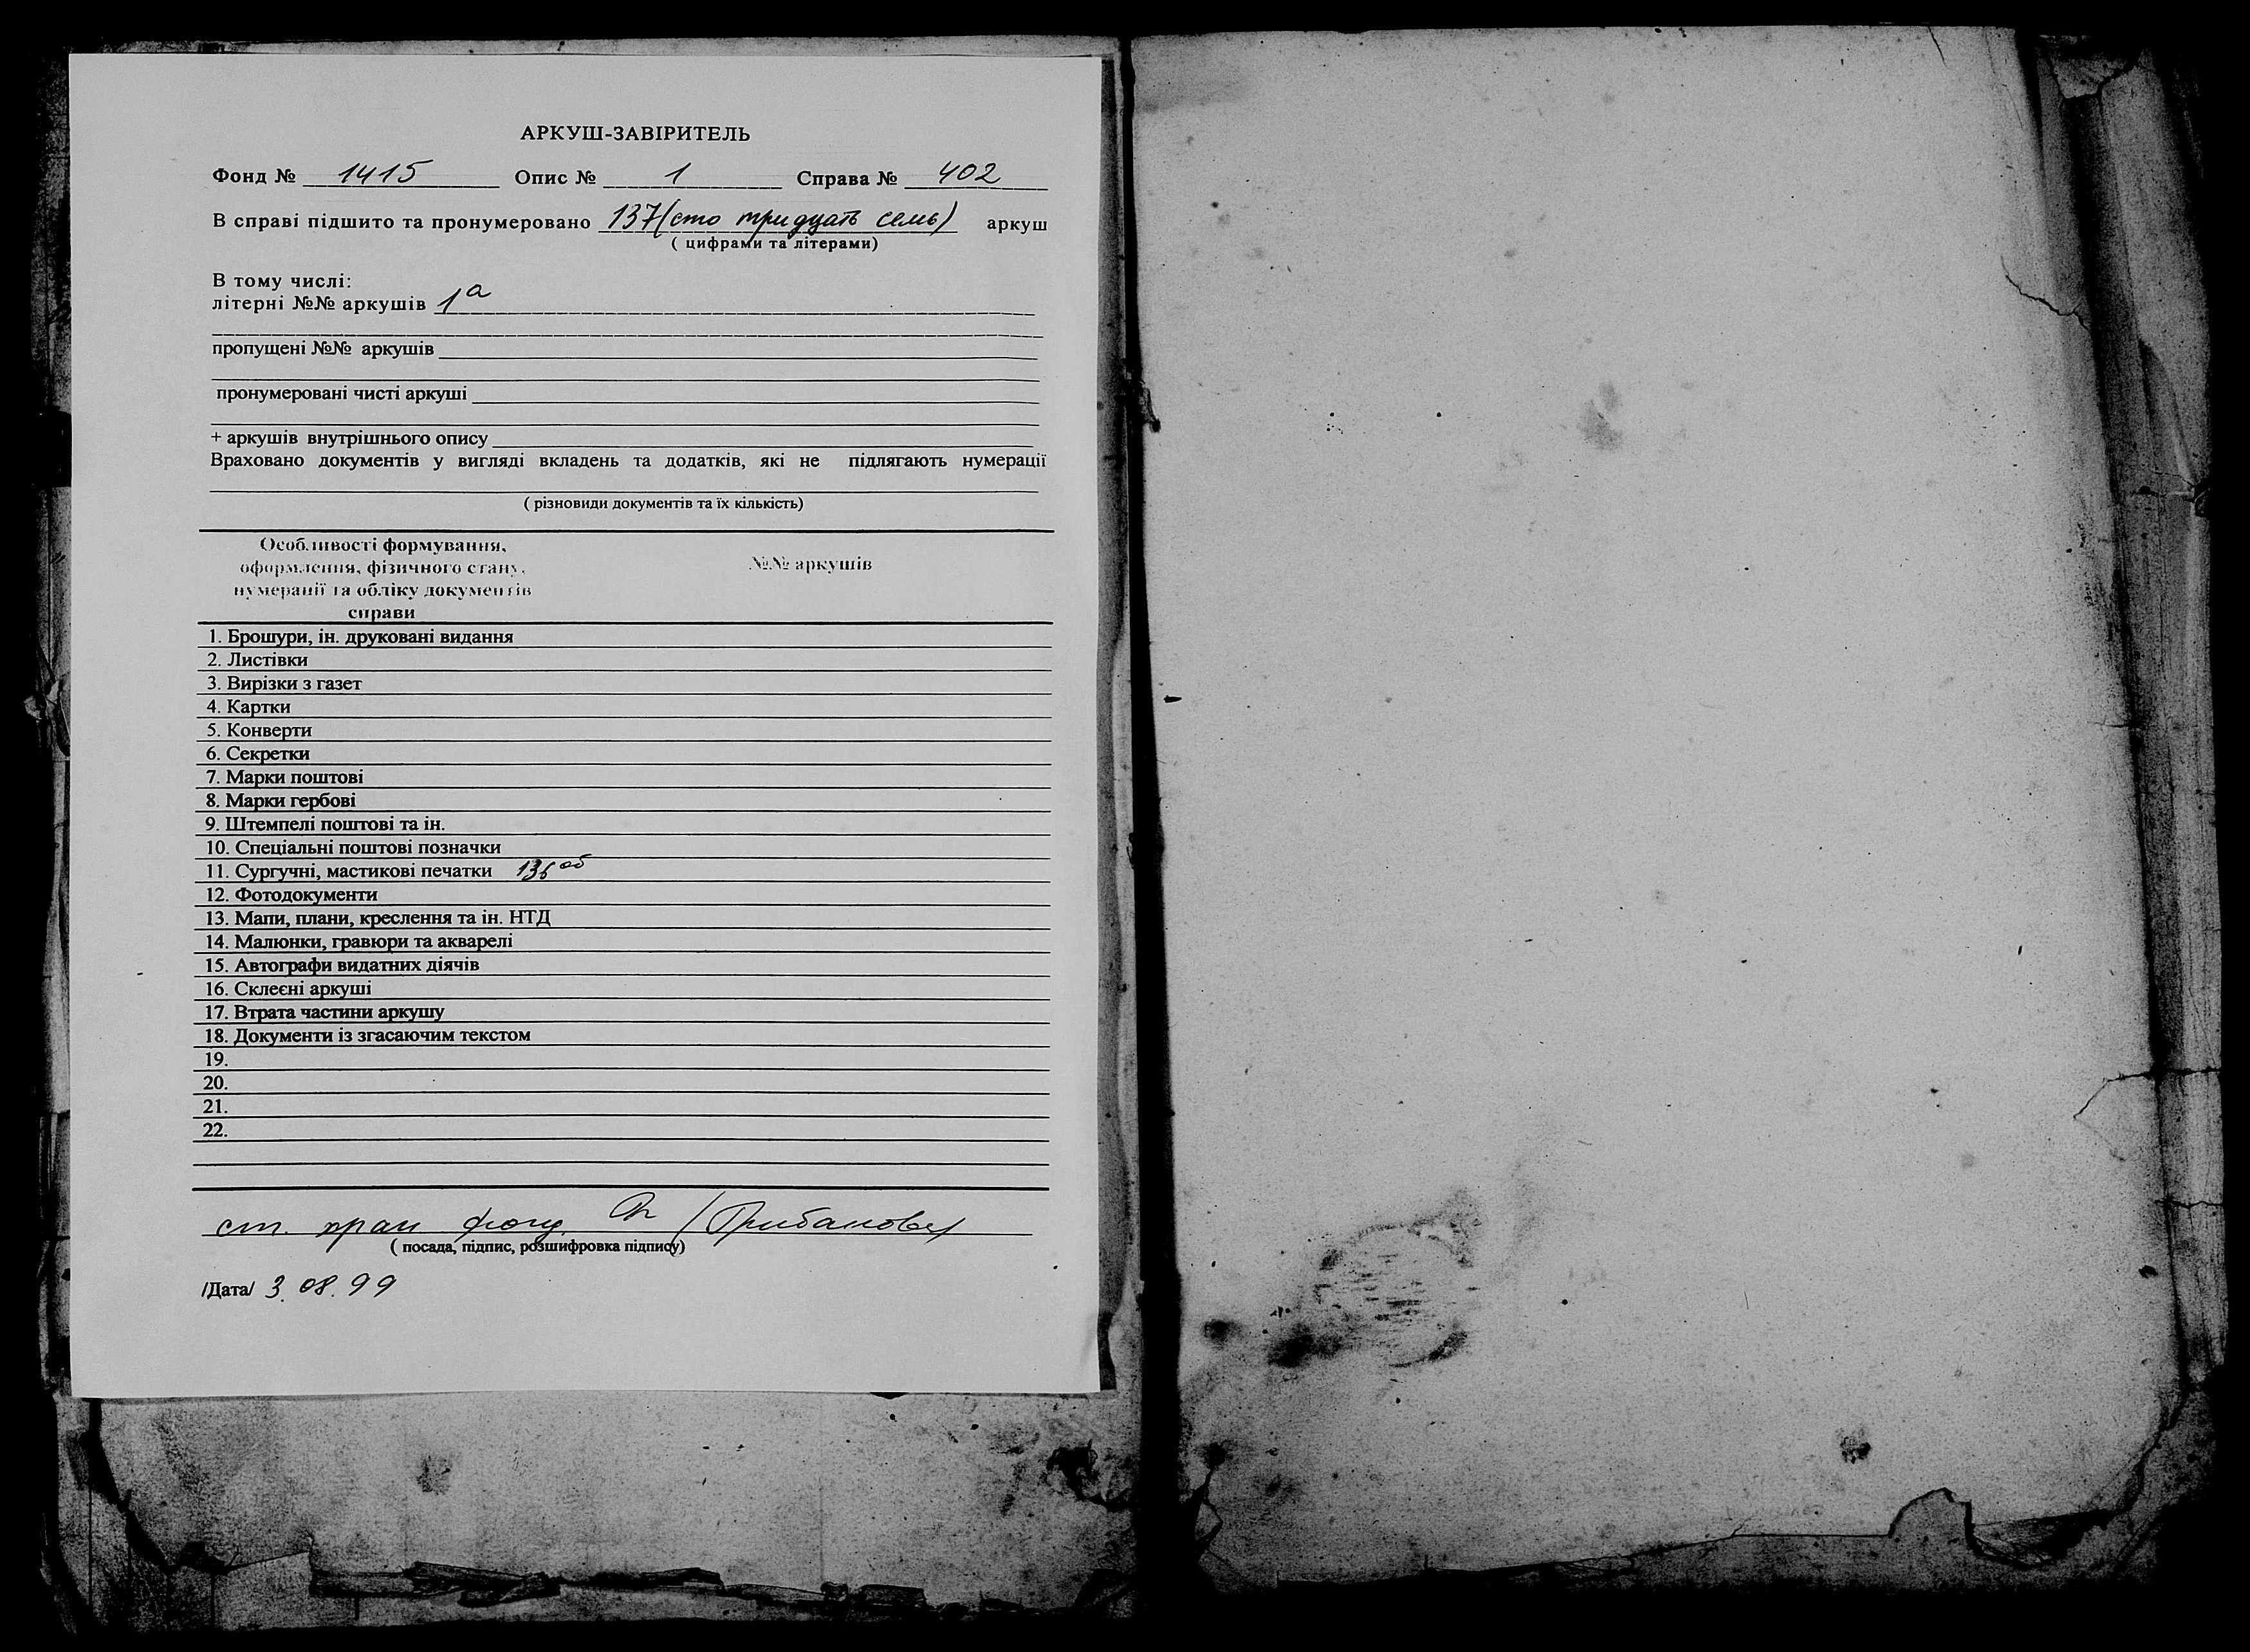 АРКУШ-ЗАВІРИТЕЛЬ
Фонд № 1415 Опис № 1 Справа № 402
В справі підшито та пронумеровано 137 (сто тридцать семь) аркуш
( цифрами та літерами)
В тому числі:
літерні №№ аркушів 1а
пропущені №№ аркушів
пронумеровані чисті аркуші
+ аркушів внутрішнього опису
Враховано документів у вигляді вкладень та додатків, які не підлягають нумерації
( різновиди документів та їх кількість)
Особливості формування,
оформлення, фізичного стану, №№ аркушів
нумерації та обліку документів
справи
1. Брошури, ін. друковані видання
2. Листівки
3. Вирізки з газет
4. Картки
5. Конверти
6. Секретки
7. Марки поштові
8. Марки гербові
9. Штемпелі поштові та ін.
10. Спеціальні поштові позначки
11. Сургучні, мастикові печатки об
12. Фотодокументи
13. Мапи, плани, креслення та ін. НТД
14. Малюнки, гравюри та акварелі
15. Автографи видатних діячів
16. Склеєні аркуші
17. Втрата частини аркушу
18. Документи із згасаючим текстом
19.
20.
21.
22.
ст. хран фонд
( посада, підпис, розшифровка підпису)
/Дата/ 3.08.99